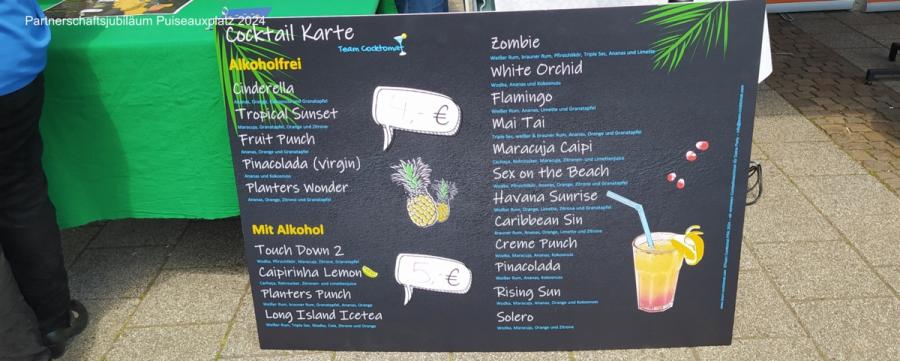 Partnerschaftsjubiläum Puiseauxplatz 2024
Cocktail Karte
Team Cocktomat
Alkoholfrei
Cinderella
Tropical Sunset
Maracuja, Granatapfel, Orange und Zitrone
Fruit Punch
Ananas, Orange und Granatapfel
Pinacolada (virgin)
Ananas und Kokosnuss
Planters Wonder
Ananas, Orange, Zitrone und Granatapfel
4,- €
Mit Alkohol
Touch Down 2
Wodka, Pfirsichlikör, Maracuja, Zitrone, Granatapfel
Caipirinha Lemon
Cachaça, Rohrzucker, Zitronen- und Limettenjuice
Planters Punch
Weißer Rum, brauner Rum, Granatapfel, Ananas, Orange
Long Island Icetea
Weißer Rum, Triple Sec, Wodka, Cola, Zitrone und Orange
5,- €
Zombie
Weißer Rum, brauner Rum, Pfirsichlikör, Triple Sec, Ananas und Limette
White Orchid
Wodka, Ananas und Kokosnuss
Flamingo
Weißer Rum, Ananas, Limette und Granatapfel
Mai Tai
Triple Sec, weißer & brauner Rum, Ananas, Orange und Granatapfel
Maracuja Caipi
Cachaça, Rohrzucker, Maracuja, Zitronen- und Limettenjuice
Sex on the Beach
Wodka, Pfirsichlikör, Ananas, Orange, Zitrone und Granatapfel
Havana Sunrise
Weißer Rum, Orange, Limette, Zitrone und Granatapfel
Caribbean Sin
Brauner Rum, Ananas, Orange, Limette und Zitrone
Creme Punch
Wodka, Maracuja, Ananas, Kokosnuss
Pinacolada
Weißer Rum, Ananas, Kokosnuss
Rising Sun
Wodka, Maracuja, Ananas, Orange und Kokosnuss
Solero
Wodka, Maracuja, Orange und Zitrone